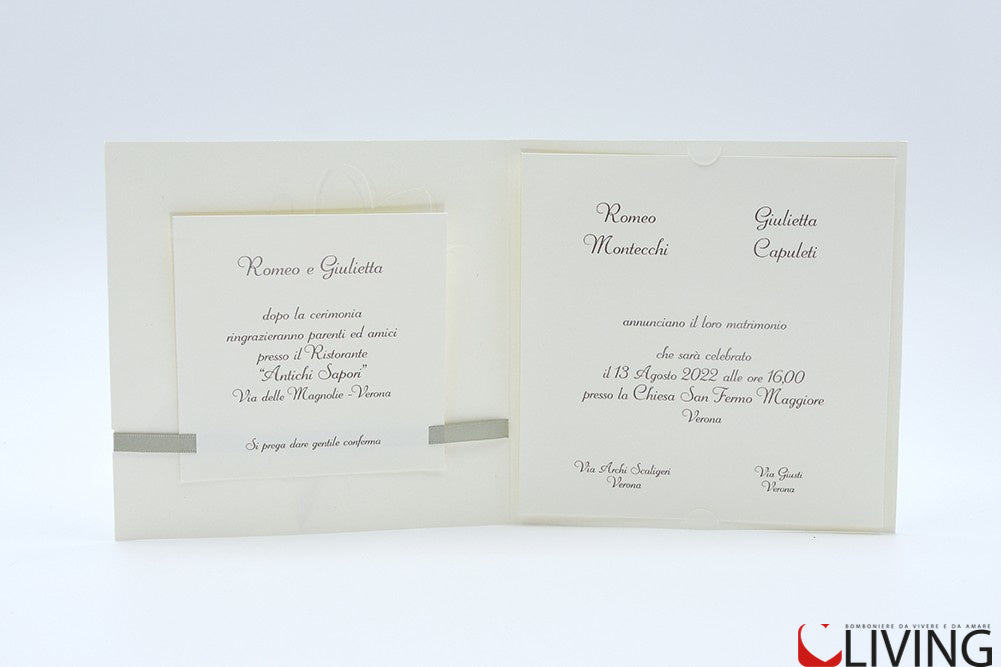 Romeo e Giulietta
dopo la cerimonia
ringrazieranno parenti ed amici
presso il Ristorante
“Antichi Sapori”
Via delle Magnolie -Verona
Si prega dare gentile conferma
Romeo
Montecchi
Giulietta
Capuleti
annunciano il loro matrimonio
che sarà celebrato
il 13 Agosto 2022 alle ore 16,00
presso la Chiesa San Fermo Maggiore
Verona
Via Archi Scaligeri
Verona
Via Giusti
Verona
BOMBONIERE DA VIVERE E DA AMARE
LIVING